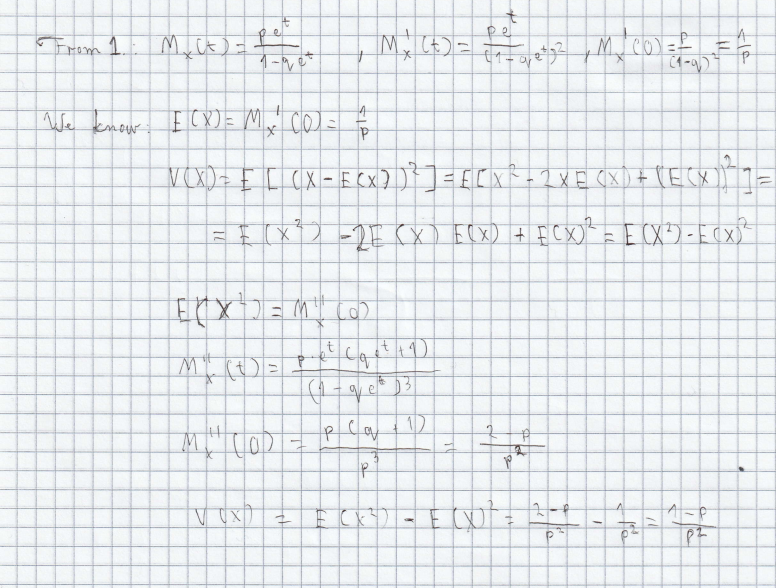 From 1.: Mₓ(t) = pe^t / (1-qe^t) , Mₓ'(t) = pe^t / (1-qe^t)² , Mₓ'(0) = p / (1-q)² = 1/p
We know: E(X) = Mₓ'(0) = 1/p
V(X) = E[(X-E(X))²] = E[X² - 2XE(X) + (E(X))²] =
= E(X²) - 2E(X)E(X) + E(X)² = E(X²) - E(X)²
E(X²) = Mₓ''(0)
Mₓ''(t) = p·e^t(qe^t+1) / (1-qe^t)³
Mₓ''(0) = p(q+1) / p³ = 2 p / p²
V(X) = E(X²) - E(X)² = 2-p / p² - 1/p² = 1-p / p²